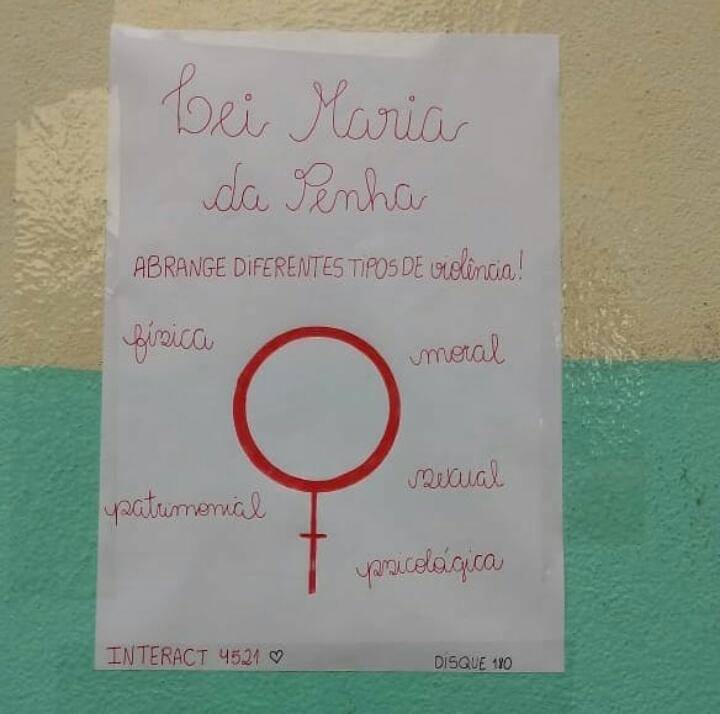 Lei Maria
da Penha
ABRANGE DIFERENTES TIPOS DE violência!
física
moral
patrimonial
sexual
psicológica
INTERACT 4521 ♡
DISQUE 180